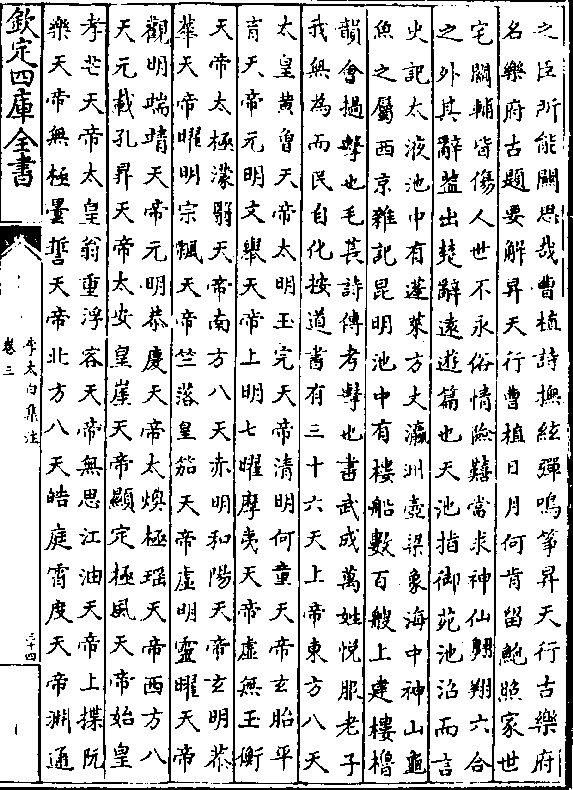 之臣所能闚思哉曹植詩撫絃彈鳴箏昇天行古樂府
名樂府古題要解昇天行曹植日月何肯留鮑照家世
宅關輔皆傷人世不永俗情險囏當求神仙翺翔六合
之外其辭蓋出楚辭遠遊篇也天池指御苑池沼而言
史記太液池中有蓬萊方丈瀛洲壺梁象海中神山龜
魚之屬西京雜記昆明池中有樓船數百艘上建樓櫓
韻會撾擊也毛萇詩傳考擊也書武成萬姓悅服老子
我無為而民自化按道書有三十六天上帝東方八天
太皇黄曾天帝太明玉完天帝清明何童天帝玄胎平
育天帝元明文舉天帝上明七曜摩夷天帝虛無玉衡
天帝太極濛翳天帝南方八天赤明和陽天帝玄明恭
華天帝曜明宗飄天帝竺落皇笳天帝虛明靈曜天帝
觀明端靖天帝元明恭慶天帝太煥極瑶天帝西方八
天元載孔昇天帝太安皇崖天帝顯定極風天帝始皇
孝芒天帝太皇翁重浮容天帝無思江油天帝上揲阮
樂天帝無極曇誓天帝北方八天皓庭霄度天帝淵通
欽定四庫全書
李太白集注
卷三
三十四